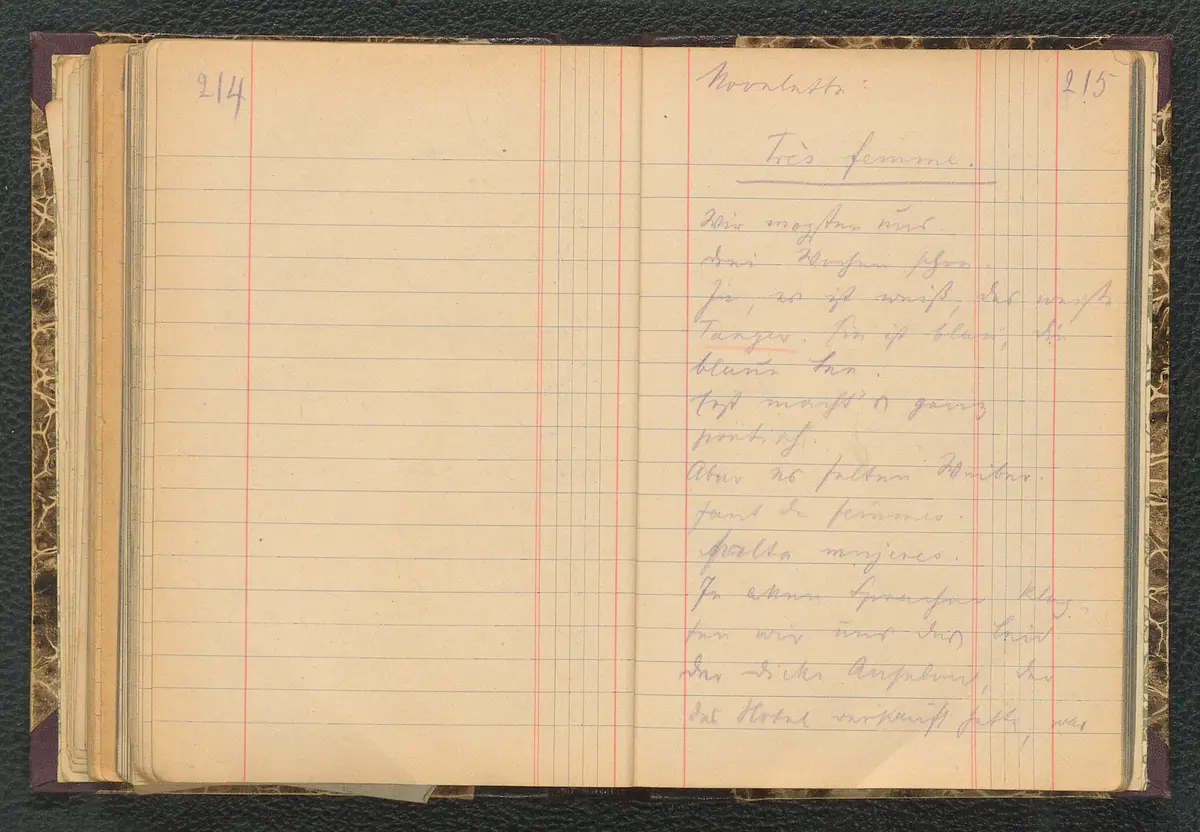 214
Novelette:
215
Très femme.
Wir mopsten uns.
drei Wochen schon.
Ja, es ist weiß, das weiße
Tanger. Sie ist blau, die
blaue See.
poetisch.
Aber es fehlten Weiber.
faut de femmes.
falta mujeres.
In allen Sprachen klag-
ten wir uns das Leid
der dicke Ansaldo, der
das Hotel verkauft hatte, war